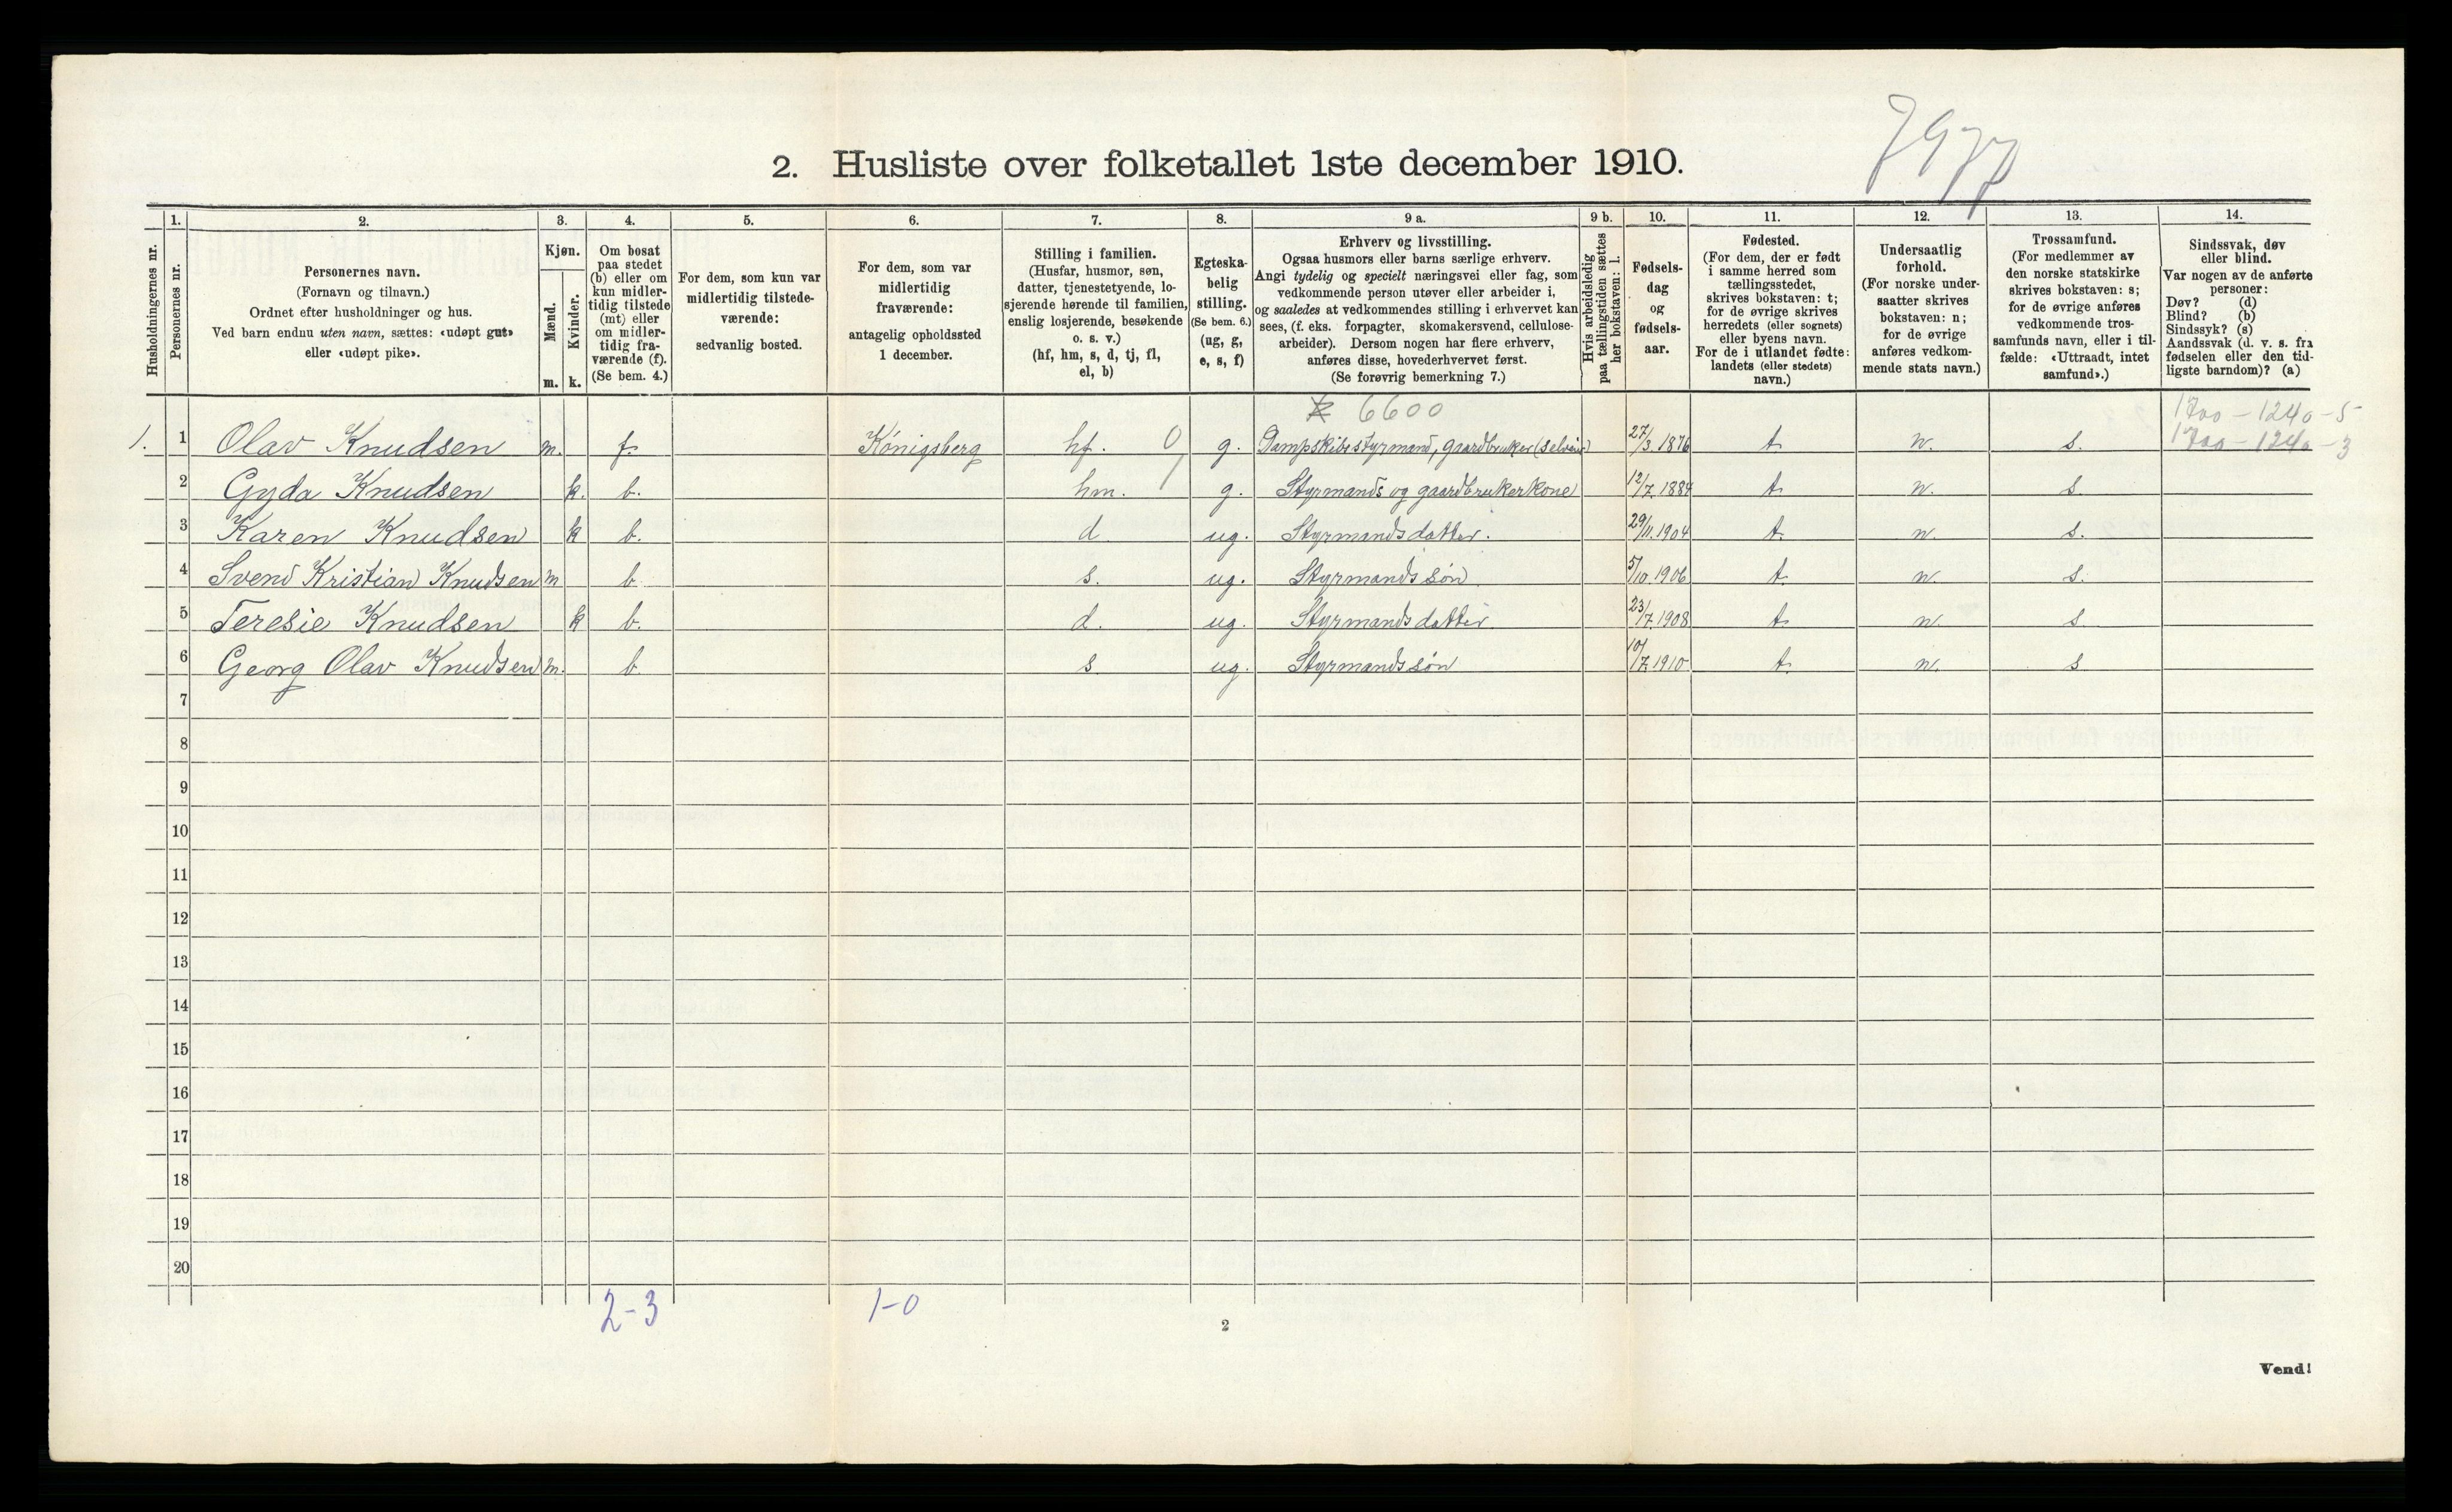 2. Husliste over folketallet 1ste december 1910.
Husholdningernes nr.
1.
Personernes nr.
2.
Personernes navn.
(Fornavn og tilnavn.)
Ordnet efter husholdninger og hus.
Ved barn endnu uten navn, sættes: «udøpt gut»
eller «udøpt pike».
3.
Kjøn.
Mænd.
m.
Kvinder.
k.
4.
Om bosat
paa stedet
(b) eller om
kun midler-
tidig tilstede
(mt) eller
om midler-
tidig fra-
værende (f).
(Se bem. 4.)
5.
For dem, som kun var
midlertidig tilstede-
værende:
sedvanlig bosted.
6.
For dem, som var
midlertidig
fraværende:
antagelig opholdssted
1 december.
7.
Stilling i familien.
(Husfar, husmor, søn,
datter, tjenestetyende, lo-
sjerende hørende til familien,
enslig losjerende, besøkende
o. s. v.)
(hf, hm, s, d, tj, fl,
el, b)
8.
Egteska-
belig
stilling.
(Se bem. 6.)
(ug, g,
e, s, f)
9 a.
Erhverv og livsstilling.
Ogsaa husmors eller barns særlige erhverv.
Angi tydelig og specielt næringsvei eller fag, som
vedkommende person utøver eller arbeider i,
og saaledes at vedkommendes stilling i erhvervet kan
sees, (f. eks. forpagter, skomakersvend, cellulose-
arbeider). Dersom nogen har flere erhverv,
anføres disse, hovederhvervet først.
(Se forøvrig bemerkning 7.)
9 b.
Hvis arbeidsledig
paa tællingstiden sættes
her bokstaven: l.
10.
Fødsels-
dag
og
fødsels-
aar.
11.
Fødested.
(For dem, der er født
i samme herred som
tællingsstedet,
skrives bokstaven: t;
for de øvrige skrives
herredets (eller sognets)
eller byens navn.
For de i utlandet fødte:
landets (eller stedets)
navn.)
12.
Undersaatlig
forhold.
(For norske under-
saatter skrives
bokstaven: n;
for de øvrige
anføres vedkom-
mende stats navn.)
13.
Trossamfund.
(For medlemmer av
den norske statskirke
skrives bokstaven: s;
for de øvrige anføres
vedkommende tros-
samfunds navn, eller i til-
fælde: «Uttraadt, intet
samfund».)
14.
Sindssvak, døv
eller blind.
Var nogen av de anførte
personer:
Døv? (d)
Blind? (b)
Sindssyk? (s)
Aandssvak (d. v. s. fra
fødselen eller den tid-
ligste barndom)? (a)
6600
1700 - 1240 - 5
1700 - 1240 - 3
1. 1 Olav Knudsen m. f. Königsberg hf. 0 g. Dampskibsstyrmand, gaardbruker (selveier) 27/3.1876 t. n. s.
2 Gyda Knudsen k. b. hm. 1 g. Styrmands og gaardbrukerkone 12/7.1884 t. n. s.
3 Karen Knudsen k b. d. ug. Styrmandsdatter. 29/11.1904 t. n. s.
4 Svend Kristian Knudsen m b. s. ug. Styrmandssøn 5/10.1906 t. n. s.
5 Teresie Knudsen k b. d. ug. Styrmandsdatter 23/7.1908 t. n. s.
6 Georg Olav Knudsen m. b. s. ug. Styrmandssøn 10/7.1910 t. n. s.
7
8
9
10
11
12
13
14
15
16
17
18
19
20
2-3
1-0
2
Vend!